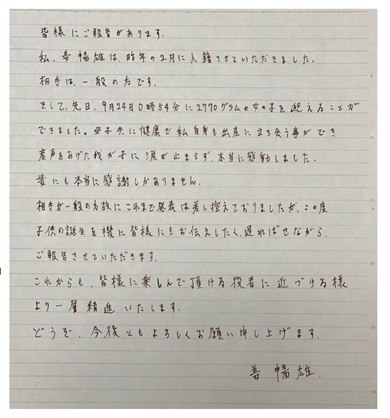 皆様にご報告があります。
私、寿幡雄は、昨年の2月に入籍させていただきました。
相手は、一般の方です。
そして、先日、9月24日0時54分に2770グラムの女の子を迎えることが
できました。母子共に健康で私自身も出産に立ち会う事ができ
産声をあげた我が子に涙が止まらず、本当に感動しました。
妻にも本当に感謝しかありません。
相手が一般の方故にこれまで発表は差し控えておりましたが、この度
子供の誕生を機に皆様にもお伝えしたく、遅ればせながら、
ご報告させていただきます。
これからも、皆様に楽しんで頂ける役者に近づける様
より一層精進いたします。
どうぞ、今後ともよろしくお願い申し上げます。
幡雄